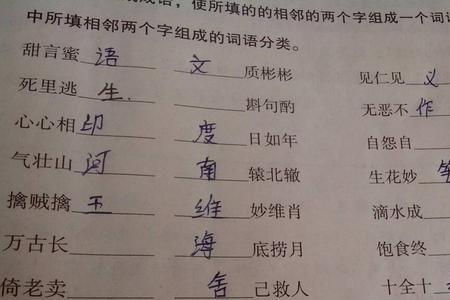 成语，使所填的的相邻的两个字组成一个词
中所填相邻两个字组成的词语分类。
甜言蜜语 文质彬彬 见仁见义
死里逃生. 斟句酌 无恶不作
心心相印 度日如年 自怨自
气壮山河 南辕北辙 生花妙
擒贼擒王 维妙维肖 滴水成
万古长 海底捞月 饱食终
倚老卖 舍己救人 十全十